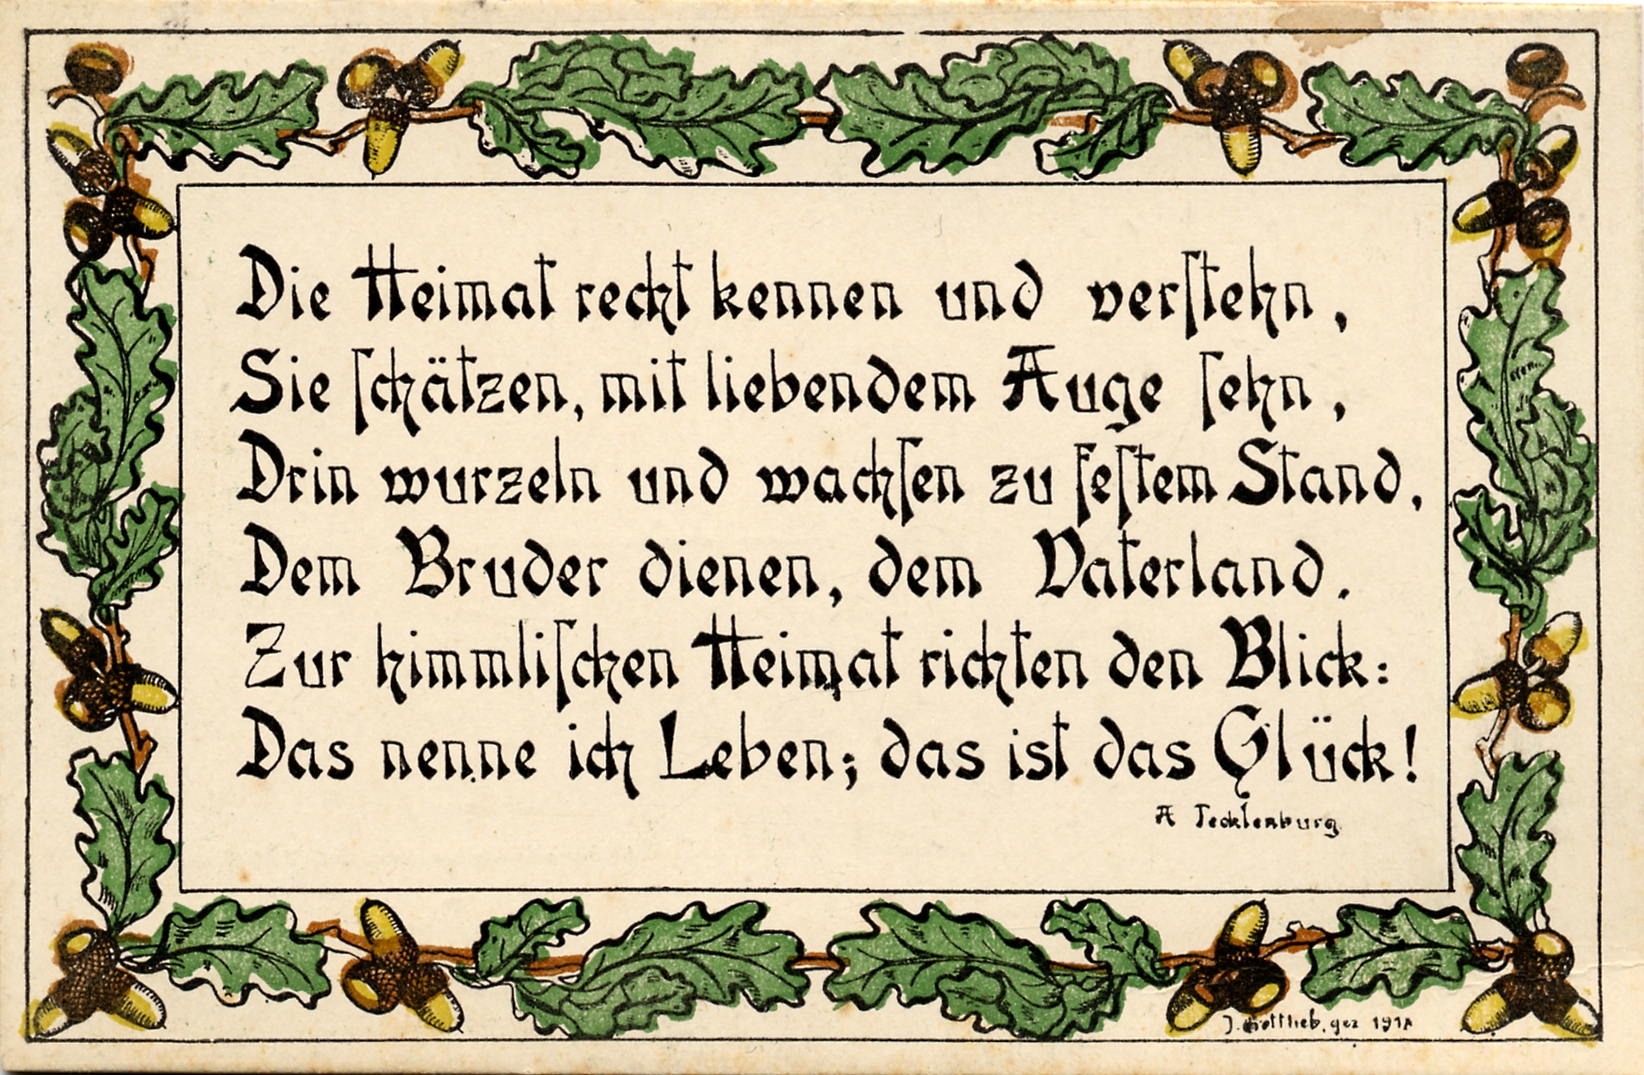 Die Heimat recht kennen und verſtehn,
Sie ſchätzen, mit liebendem Auge ſehn,
Drin wurzeln und wachſen zu feſtem Stand,
Dem Bruder dienen, dem Vaterland.
Zur himmliſchen Heimat richten den Blick:
Das nenne ich Leben; das ist das Glück!
A Tecklenburg
J. Gottlieb, gez